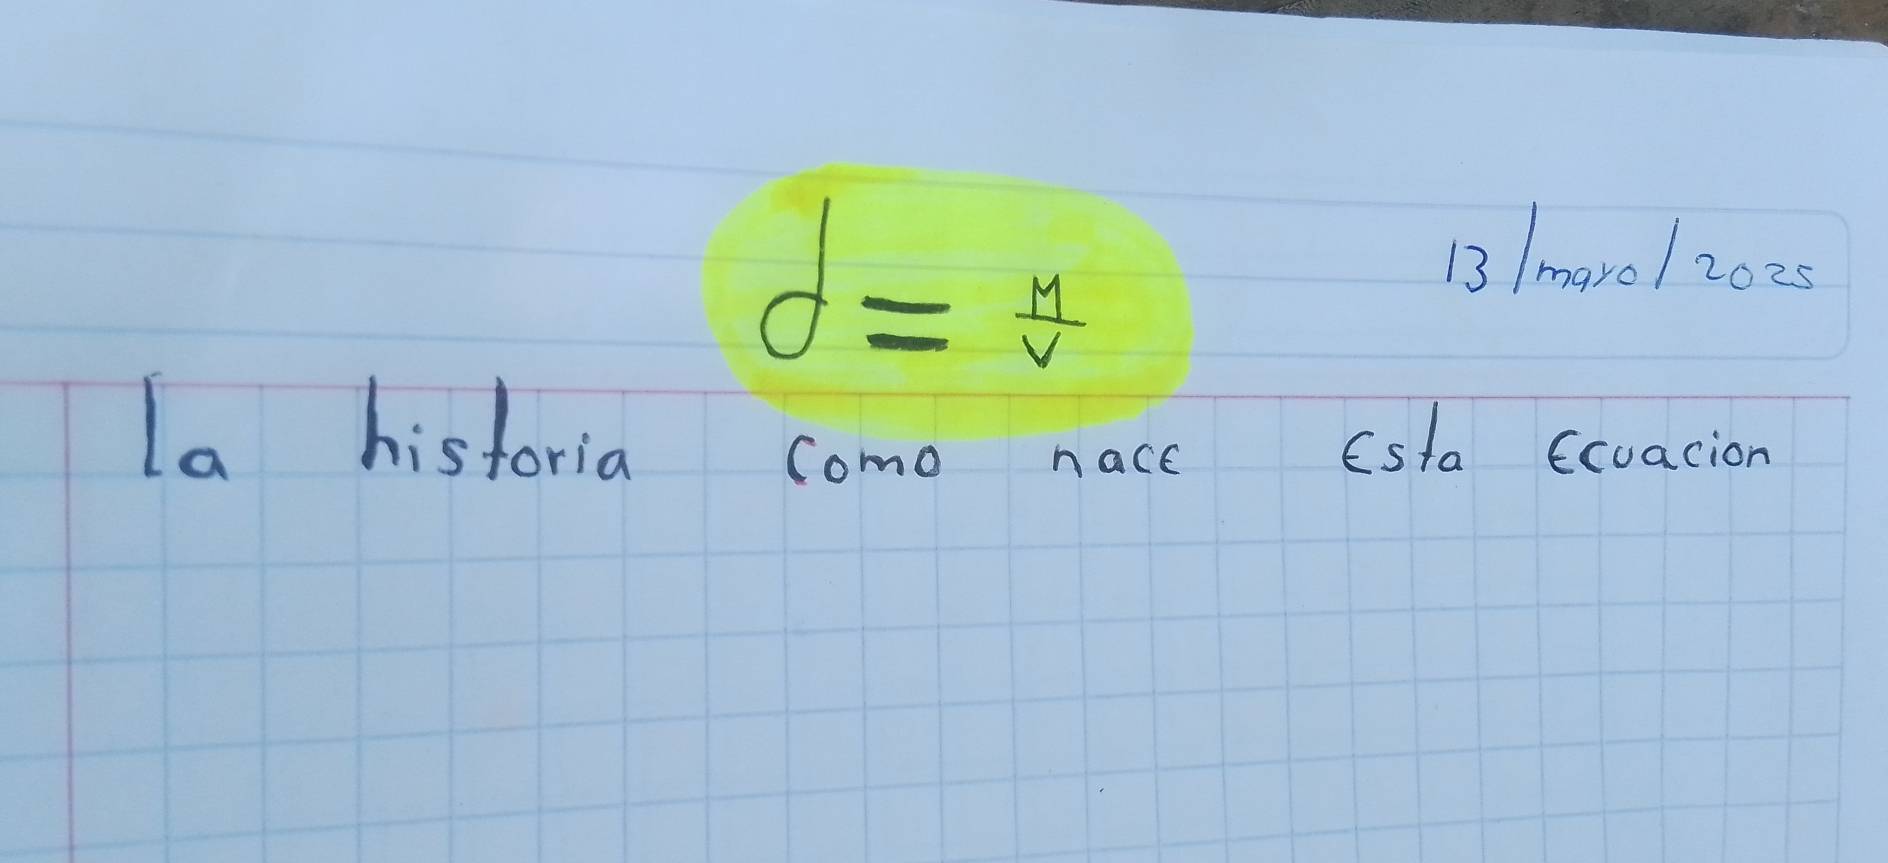 d = M/V
13/mayo/2025
la historia como nace Esta Ecuacion